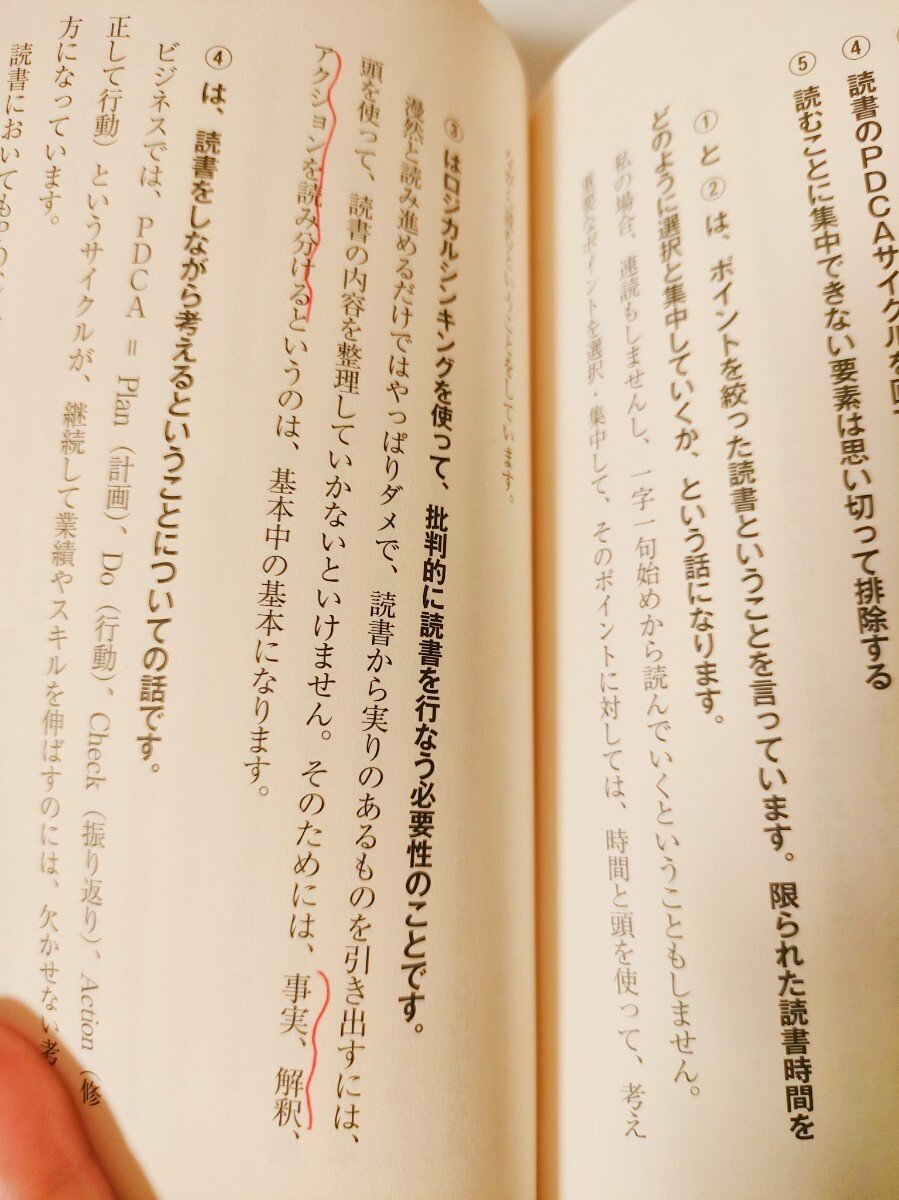 ④ 読書のＰＤＣＡサイクルを回
⑤ 読むことに集中できない要素は思い切って排除する
① と ② は、ポイントを絞った読書ということを言っています。限られた読書時間を
どのように選択と集中していくか、という話になります。
私の場合、速読もしませんし、一字一句始めから読んでいくということもしません。
重要なポイントを選択・集中して、そのポイントに対しては、時間と頭を使って、考え
ということをしています。
③ はロジカルシンキングを使って、批判的に読書を行なう必要性のことです。
漫然と読み進めるだけではやっぱりダメで、読書から実りのあるものを引き出すには、
頭を使って、読書の内容を整理していかないといけません。そのためには、事実、解釈、
アクションを読み分けるというのは、基本中の基本になります。
④ は、読書をしながら考えるということについての話です。
ビジネスでは、ＰＤＣＡ＝Plan（計画）、Do（行動）、Check（振り返り）、Action（修
正して行動）というサイクルが、継続して業績やスキルを伸ばすのには、欠かせない考
方になっています。
読書においても